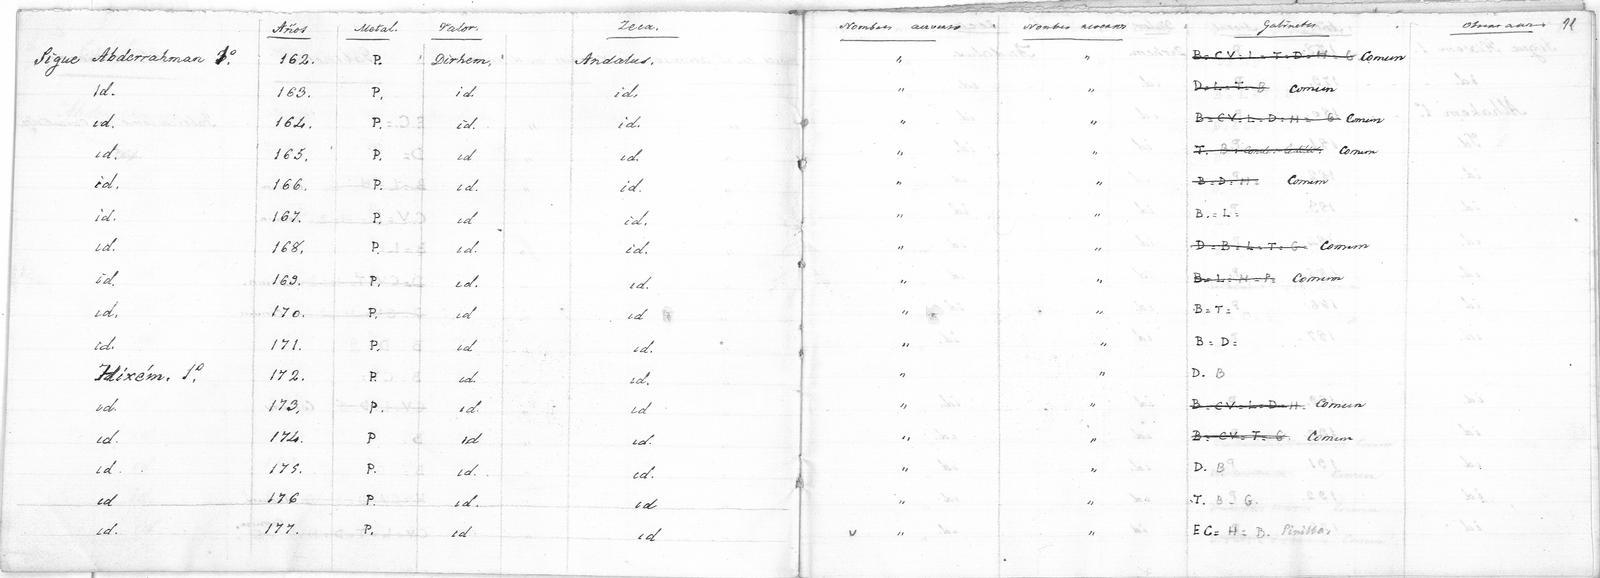 Años Metal. Valor. Zeca. Nombres anverso Nombres reverso Gabinetes
Sigue Abderrahman 1º. 162. P. Dirhem. Andalus. " " B=CV=L=T=D=H=G Comun
id. 163. P. id. id. " " D=L=T=G Comun
id. 164. P. id. id. " " B=CV=L=D=H=G Comun
id. 165. P. id id. " " T. B= Comun
id. 166. P. id. id. " " B=D=H= Comun
id. 167. P. id id. " " B.=L=
id. 168. P. id. id. " " D=B=L=T=G= Comun
id. 169. P. id. id. " " B=L=H=P. Comun
id. 170. P. id id " " B=T=
id. 171. P. id id. " " B=D=
Hixém. 1º. 172. P. id. id. " " D. B
id. 173. P. id. id " " B=CV=L=D=H. Comun
id. 174. P id id. " " B=CV=T=G. Comun
id. 175. P. id. id. " " D. B
id 176 P. id. id " " T. B=G.
id. 177. P. id id v " " EC=H=B. Pinillas